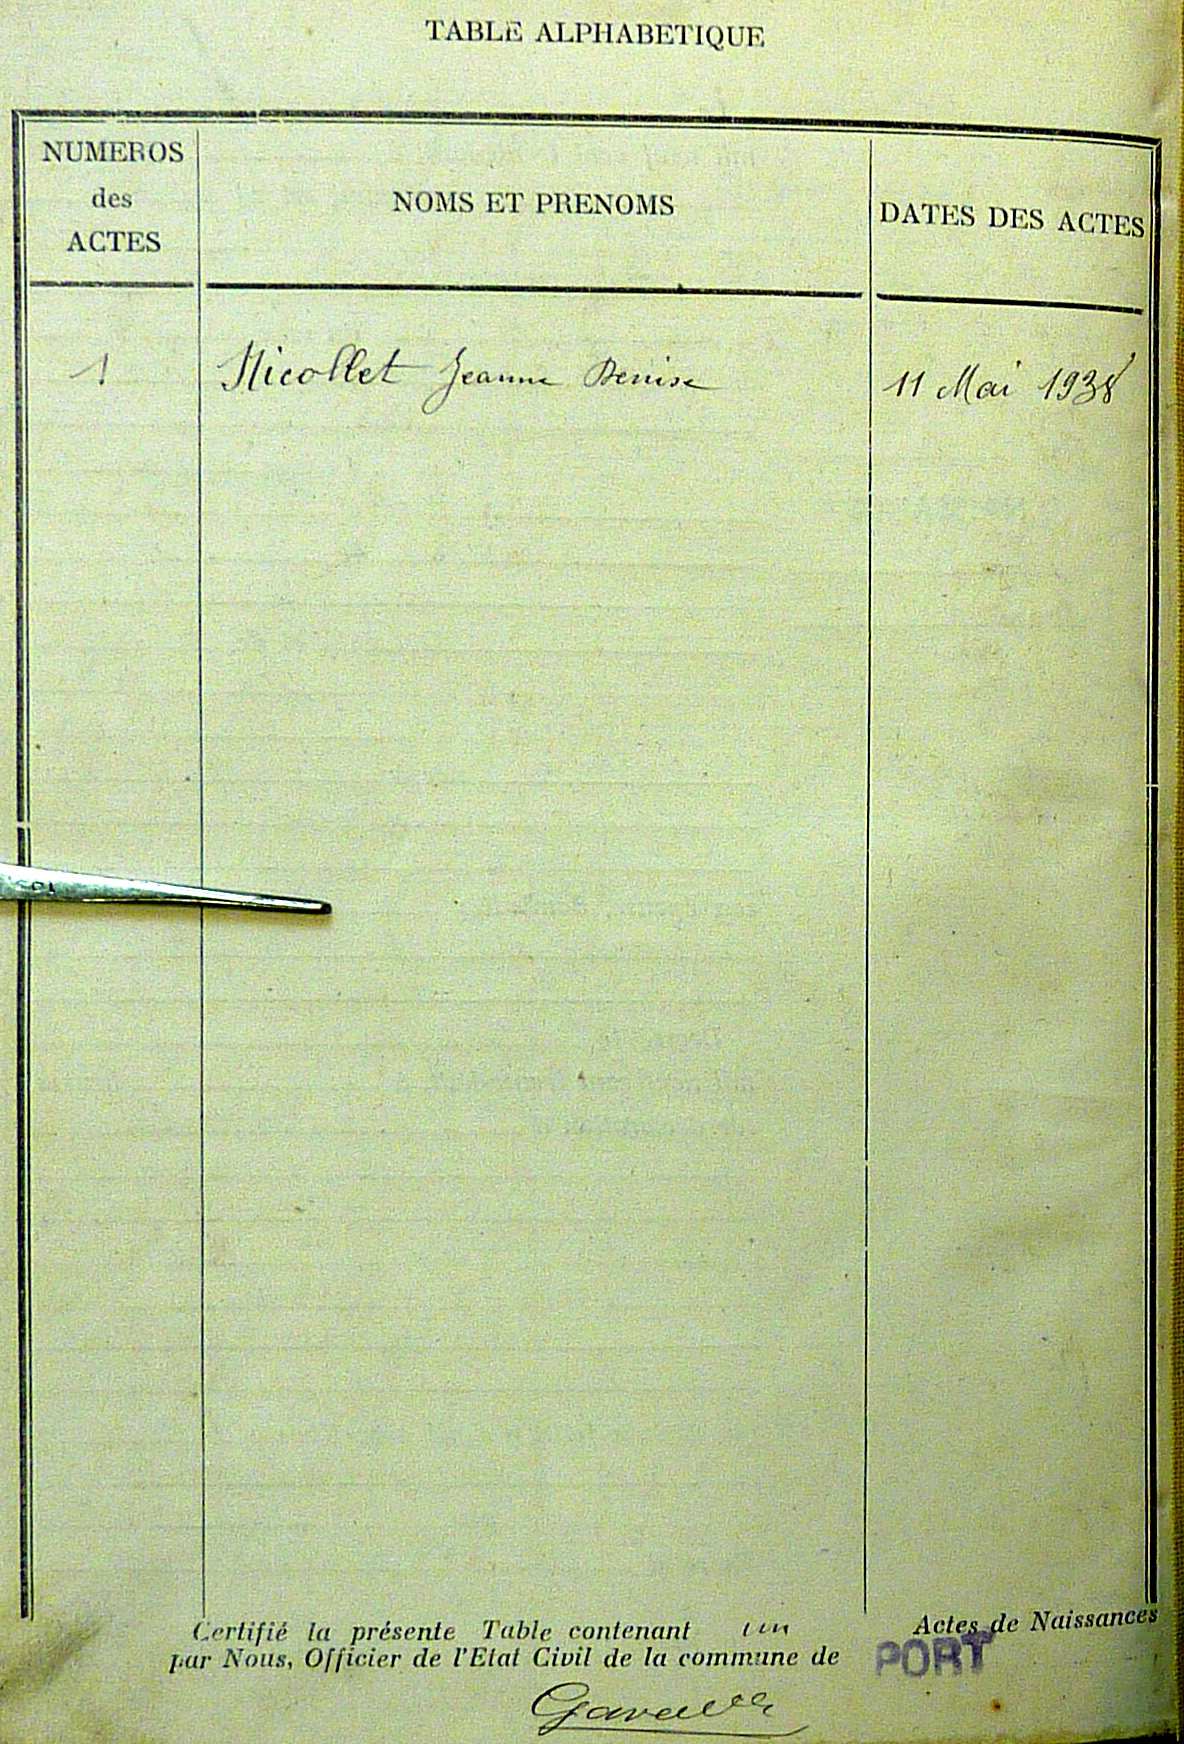 TABLE ALPHABETIQUE
NUMEROS
des
ACTES
NOMS ET PRENOMS
DATES DES ACTES
1 Nicollet Jeanne Denise 11 Mai 1938
Certifié la présente Table contenant un Actes de Naissances
par Nous, Officier de l'Etat Civil de la commune de PORT